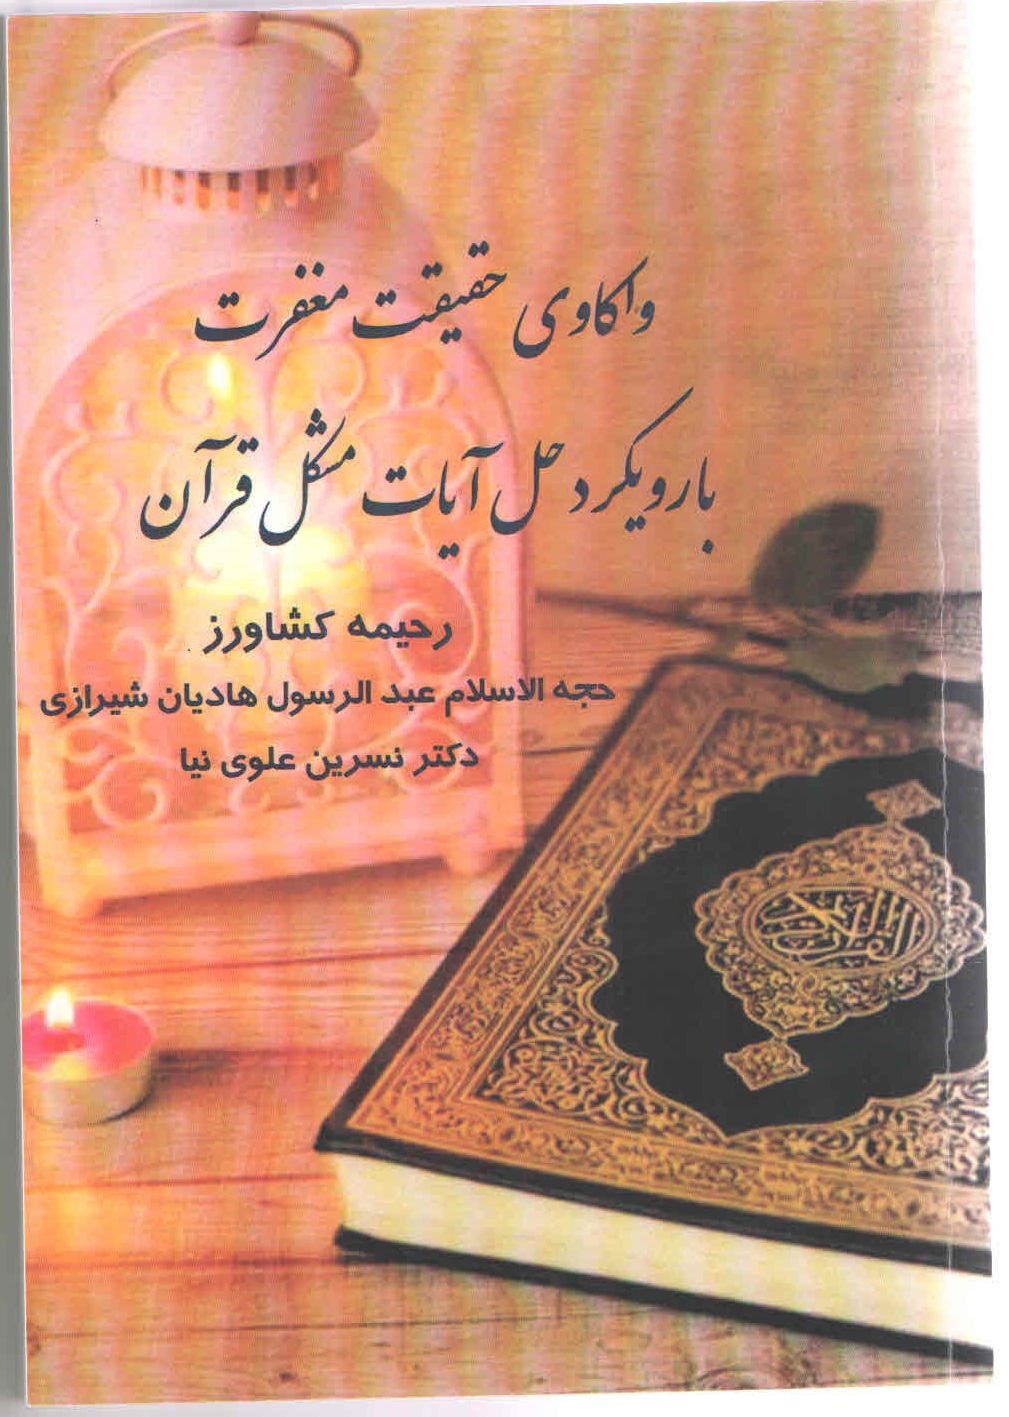 واکاوی حقیقت مغفرت
با رویکرد حل آیات مشکل قرآن
رحیمه کشاورز
حجه الاسلام عبد الرسول هادیان شیرازی
دکتر نسرین علوی نیا